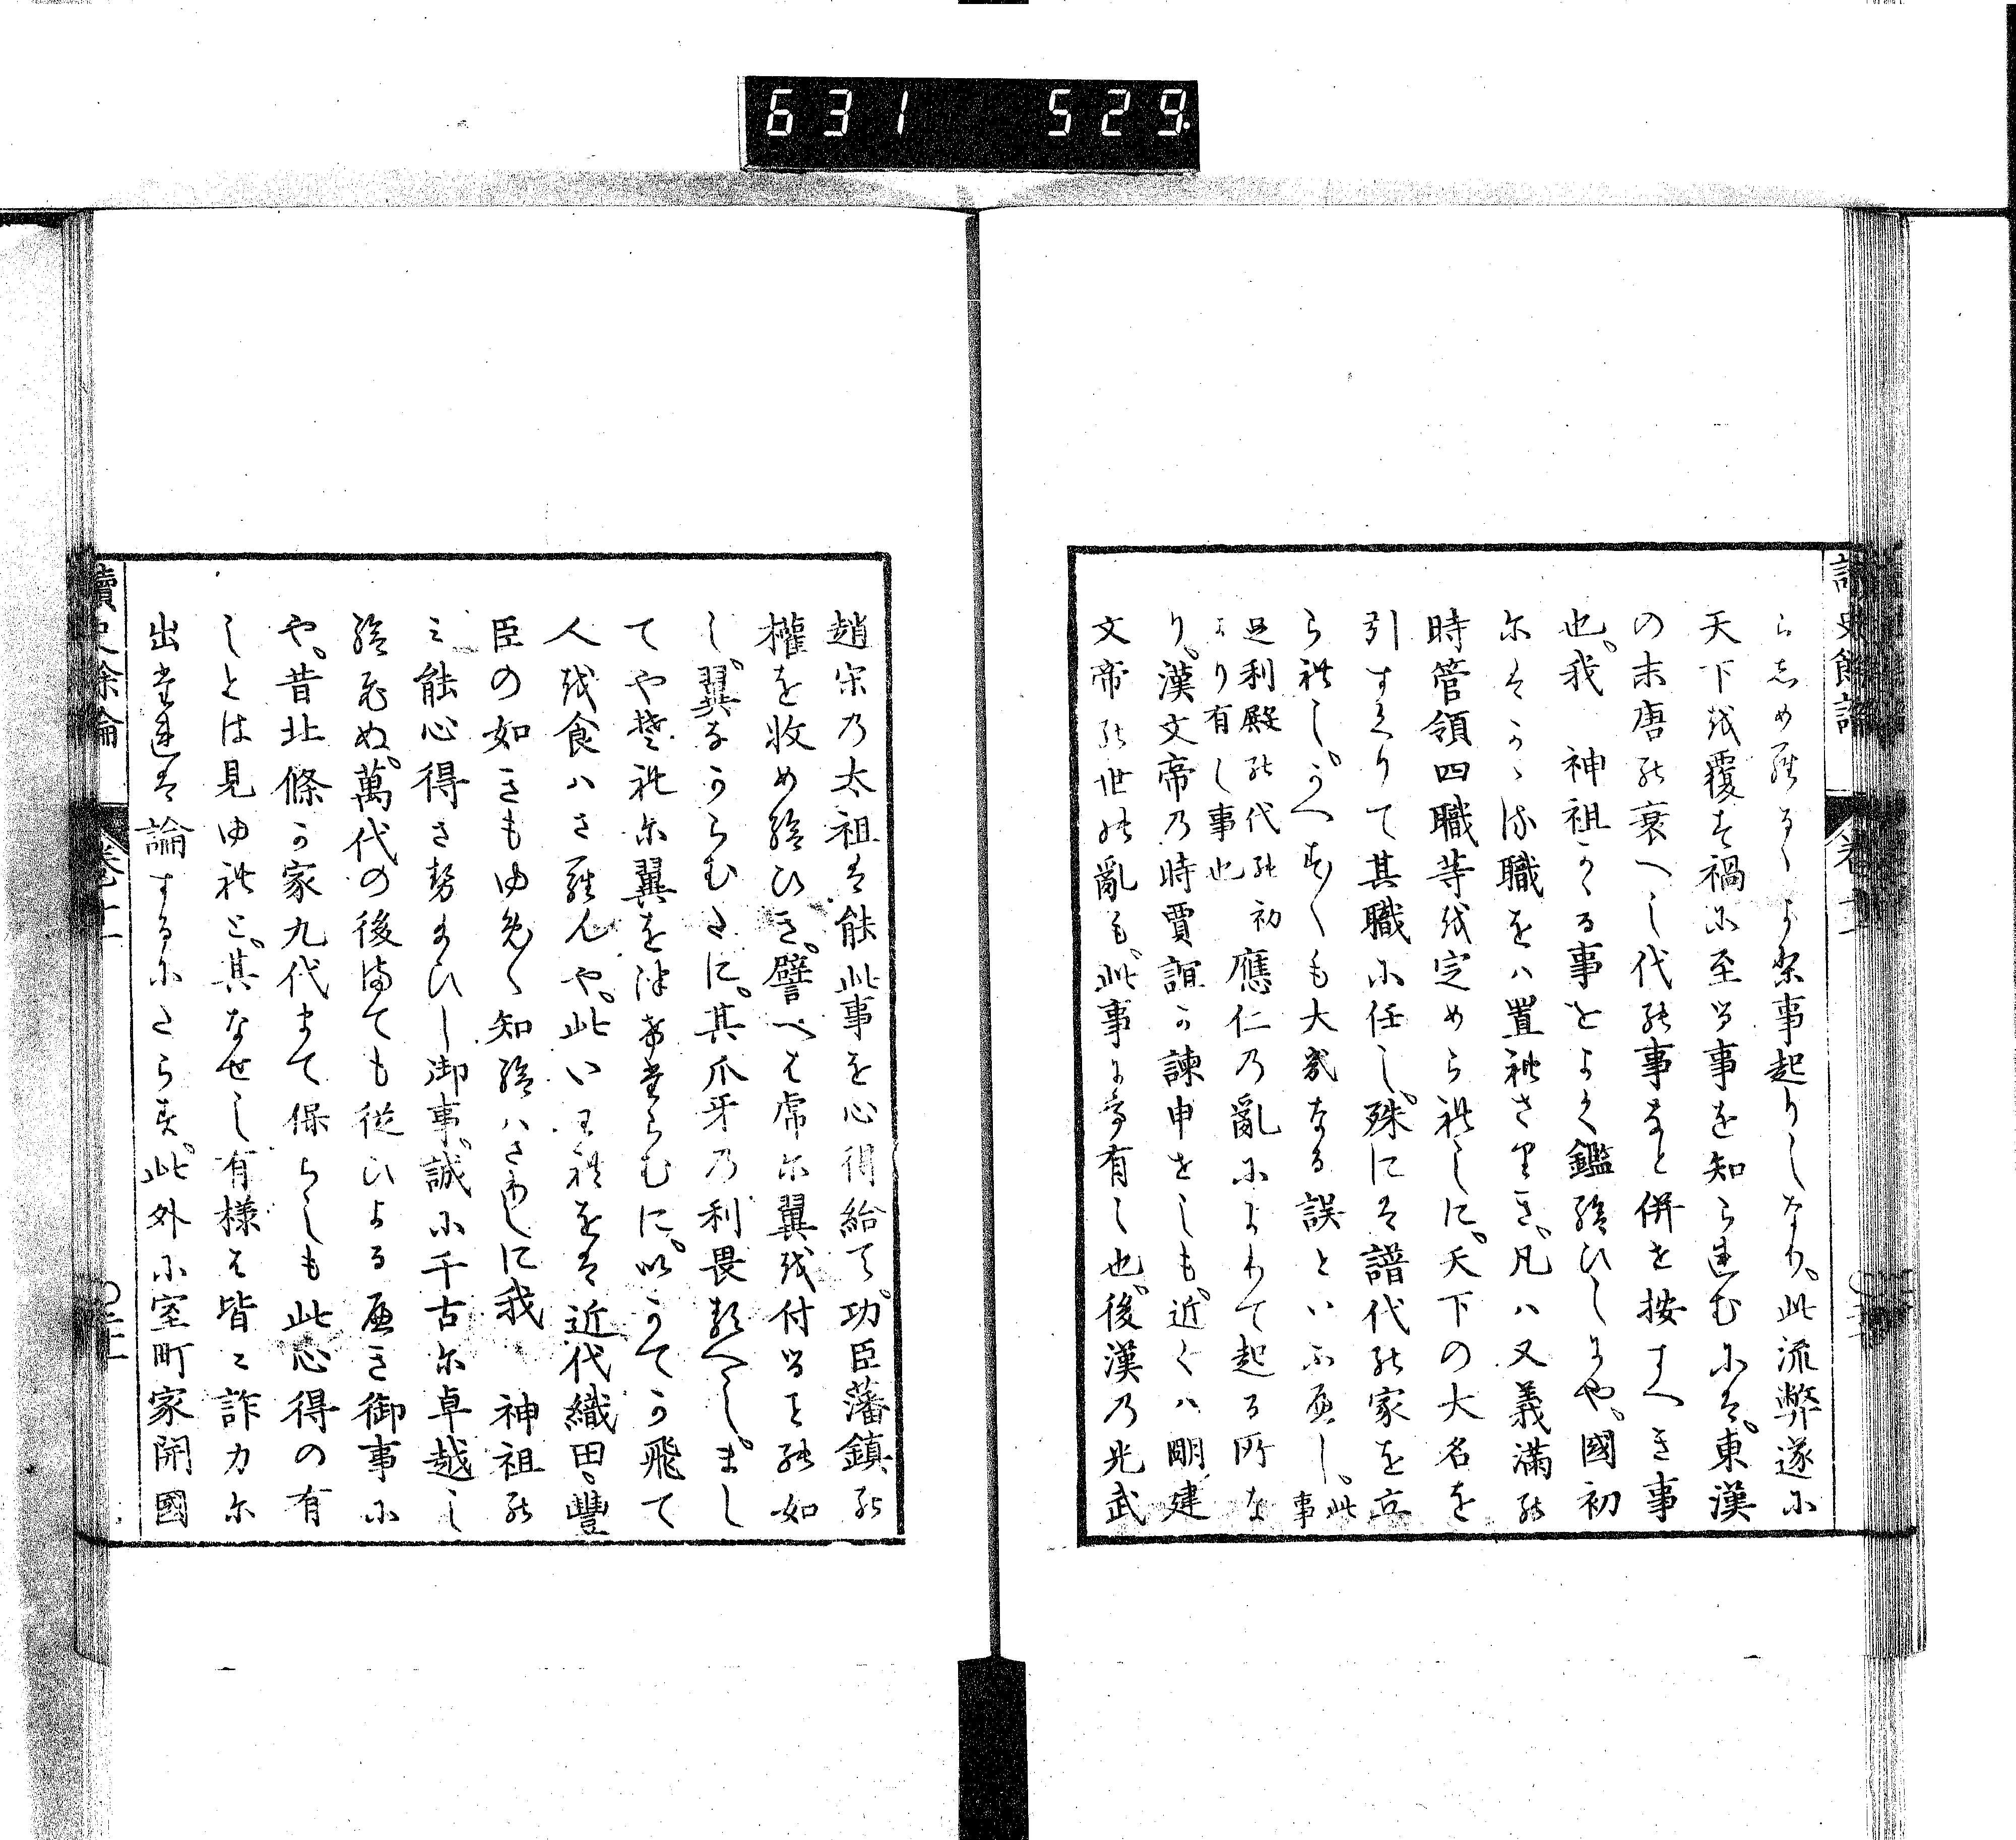 631 529
讀史餘論 卷十一
らしめらるゝより事起りしなり。此流弊遂に
天下を覆す禍に至る事を知られむには。東漢
の末唐の衰へし代の事なと併せ按すへき事
也。我 神祖かゝる事をよく鑑給ひしにや。國初
にはかゝる職をは置れさりき。凡は又義滿の
時管領四職等を定められしに。天下の大名を
引すくりて其職に任し。殊には譜代の家を立
られし。かへすくも大きなる誤といふへし。此事
足利殿の代の初
より有し事也
應仁の亂によりて起る所な
り。漢文帝の時賈誼か諫申せしも。近くは明建
文帝の世の亂も。此事に有し也。後漢の光武
趙宋の太祖は能此事を心得給て。功臣藩鎮の
權を收め給ひき。譬へは虎に翼を付ることの如
し。翼なからむたに。其爪牙の利畏るへし。まし
てやそれに翼をつけたらむに。いかてか飛て
人を食はさらんや。此いはれをは近代織田豐
臣の如きもゆめゝ知給はさりしに我 神祖の
み能心得させ給ひし御事。誠に千古に卓越し
給ぬ。萬代の後まても從ひよるへき御事に
や。昔北條か家九代まて保ちしも此心得の有
しとは見ゆれと。其なせし有様は皆々詐力に
出たれは論するにたらす。此外に室町家開國
讀史餘論 卷十一